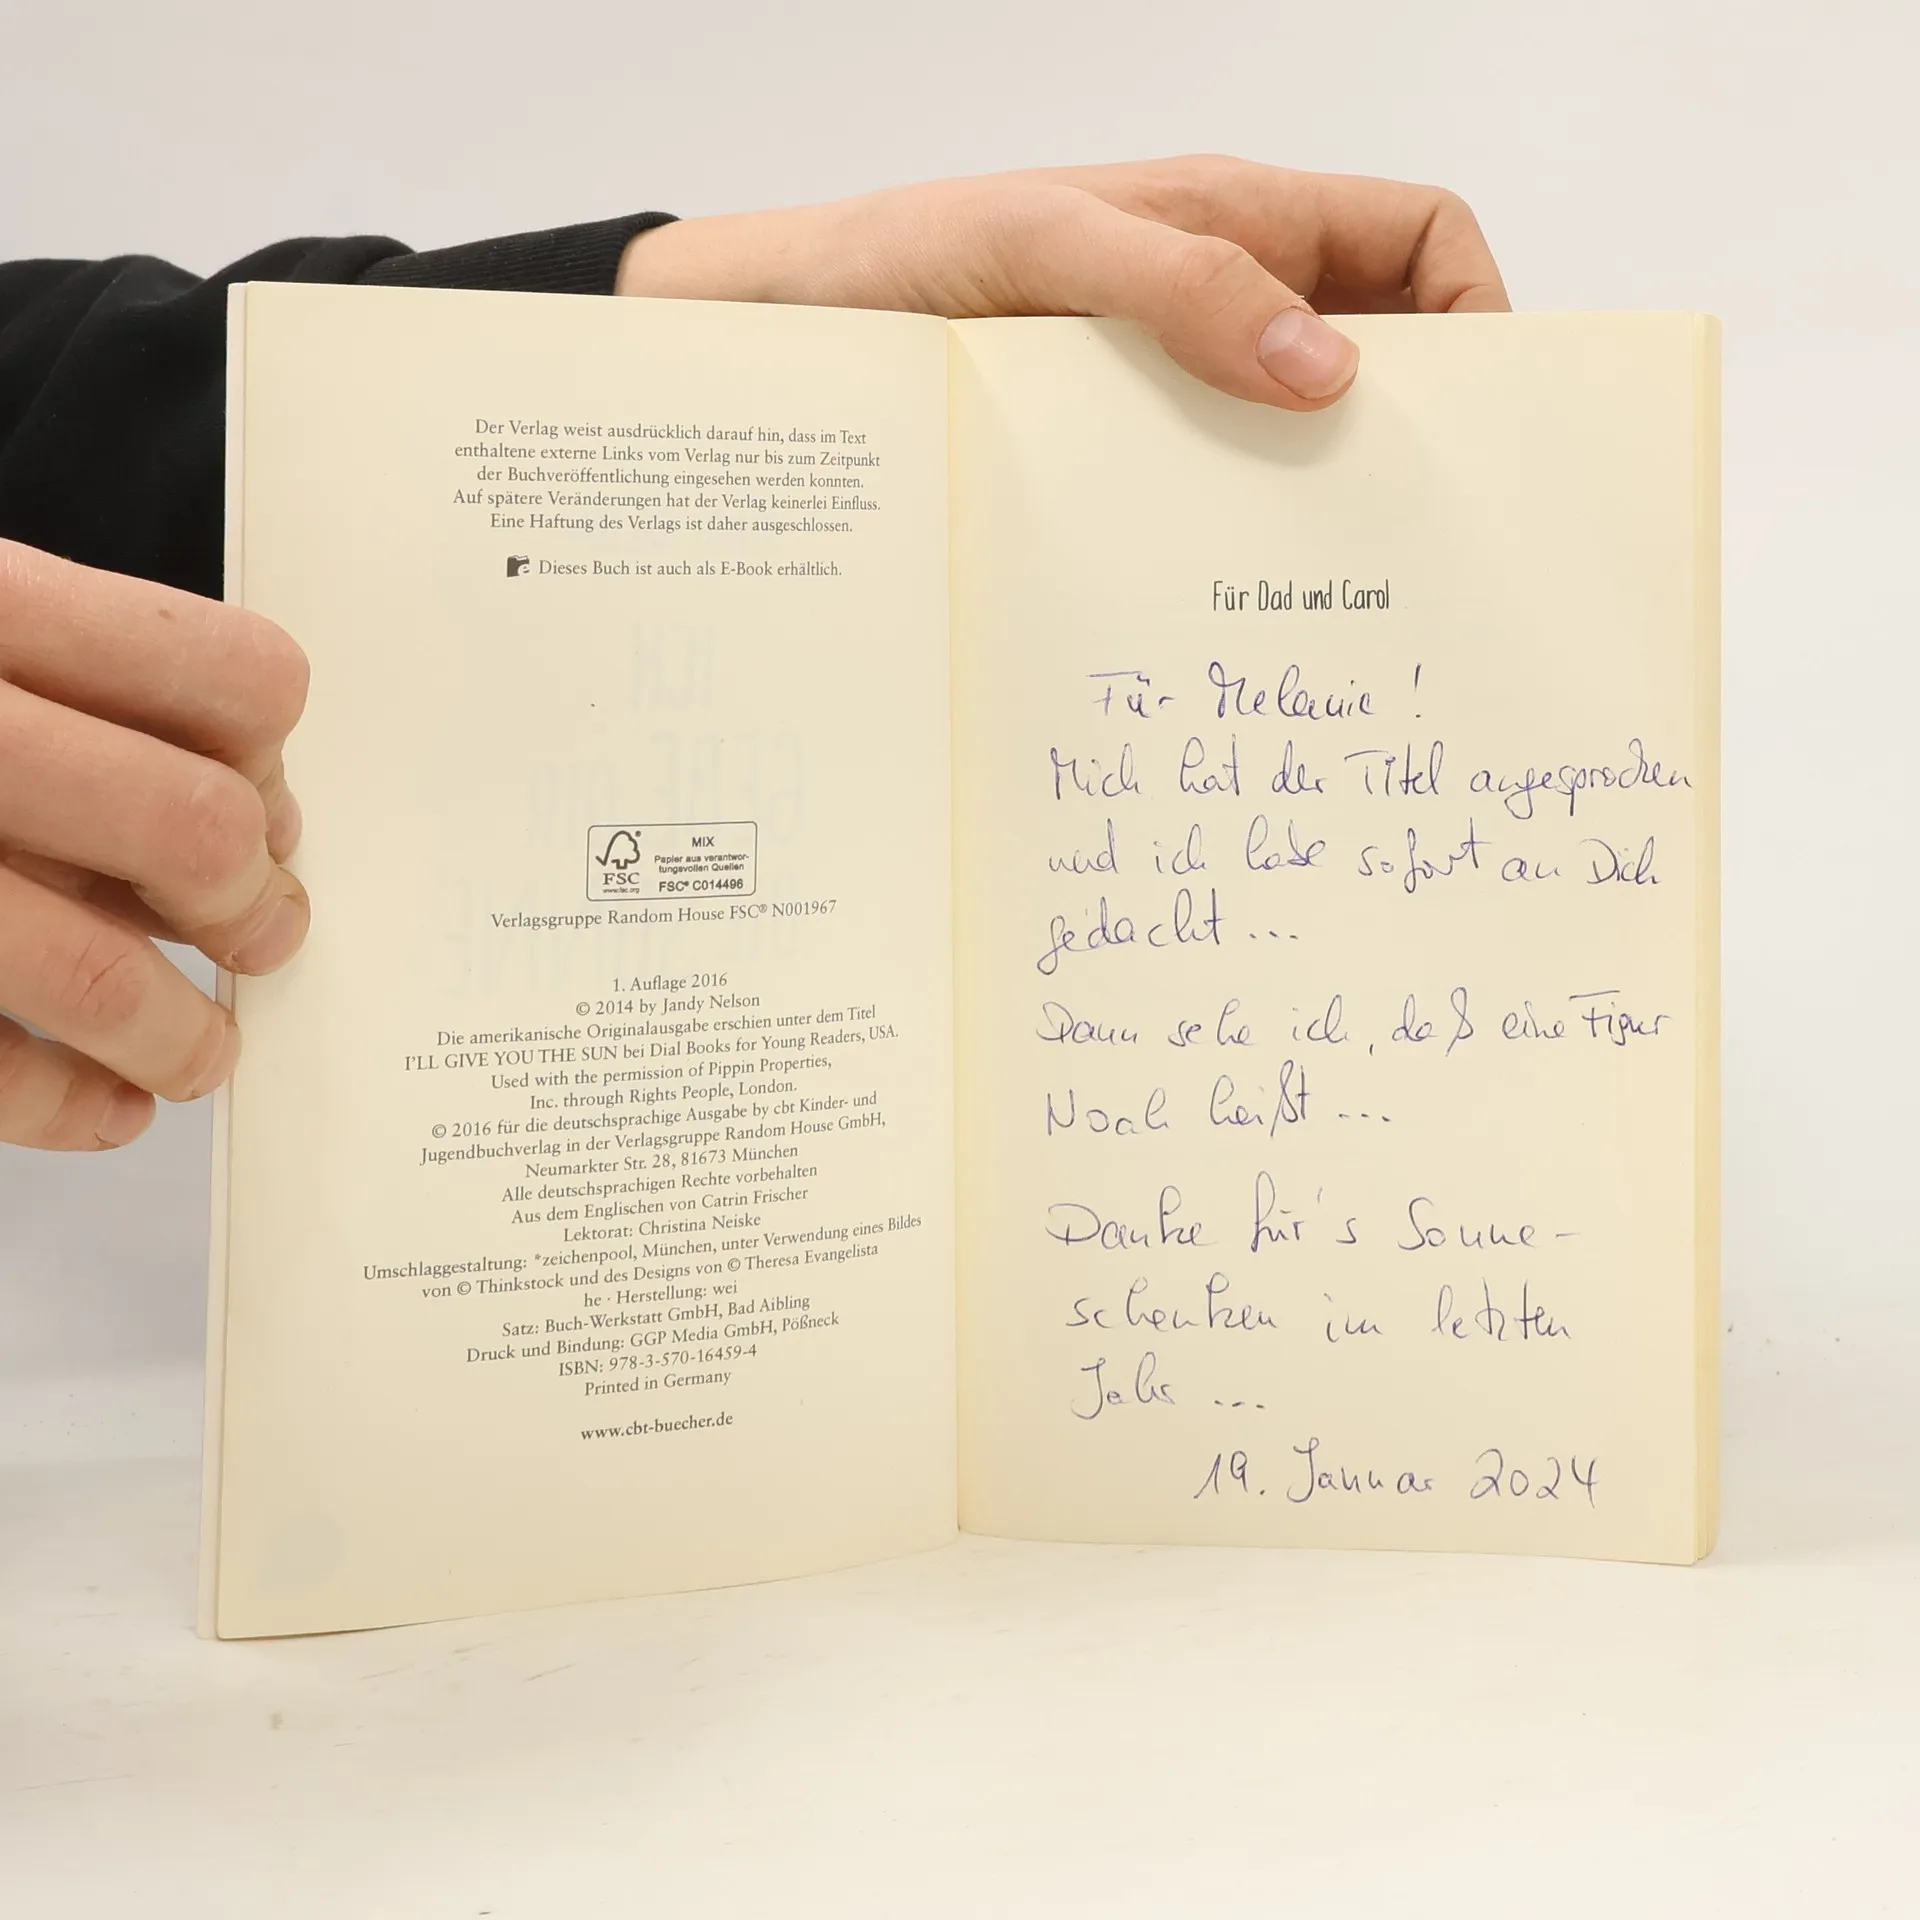 Der Verlag weist ausdrücklich darauf hin, dass im Text
enthaltene externe Links vom Verlag nur bis zum Zeitpunkt
der Buchveröffentlichung eingesehen werden konnten.
Auf spätere Veränderungen hat der Verlag keinerlei Einfluss.
Eine Haftung des Verlags ist daher ausgeschlossen.
e Dieses Buch ist auch als E-Book erhältlich.
FSC
www.fsc.org
MIX
Papier aus verantwor-
tungsvollen Quellen
FSC® C014496
Verlagsgruppe Random House FSC® N001967
1. Auflage 2016
© 2014 by Jandy Nelson
Die amerikanische Originalausgabe erschien unter dem Titel
I'LL GIVE YOU THE SUN bei Dial Books for Young Readers, USA.
Used with the permission of Pippin Properties,
Inc. through Rights People, London.
© 2016 für die deutschsprachige Ausgabe by cbt Kinder- und
Jugendbuchverlag in der Verlagsgruppe Random House GmbH,
Neumarkter Str. 28, 81673 München
Alle deutschsprachigen Rechte vorbehalten
Aus dem Englischen von Catrin Frischer
Lektorat: Christina Neiske
Umschlaggestaltung: *zeichenpool, München, unter Verwendung eines Bildes
von © Thinkstock und des Designs von © Theresa Evangelista
he · Herstellung: wei
Satz: Buch-Werkstatt GmbH, Bad Aibling
Druck und Bindung: GGP Media GmbH, Pößneck
ISBN: 978-3-570-16459-4
Printed in Germany
www.cbt-buecher.de
Für Dad und Carol
Für Melanie !
Mich hat der Titel angesprochen
und ich habe sofort an Dich
gedacht ...
Dann sehe ich, daß eine Figur
Noah heißt ...
Danke für's Sonne-
schenken im letzten
Jahr ...
19. Januar 2024